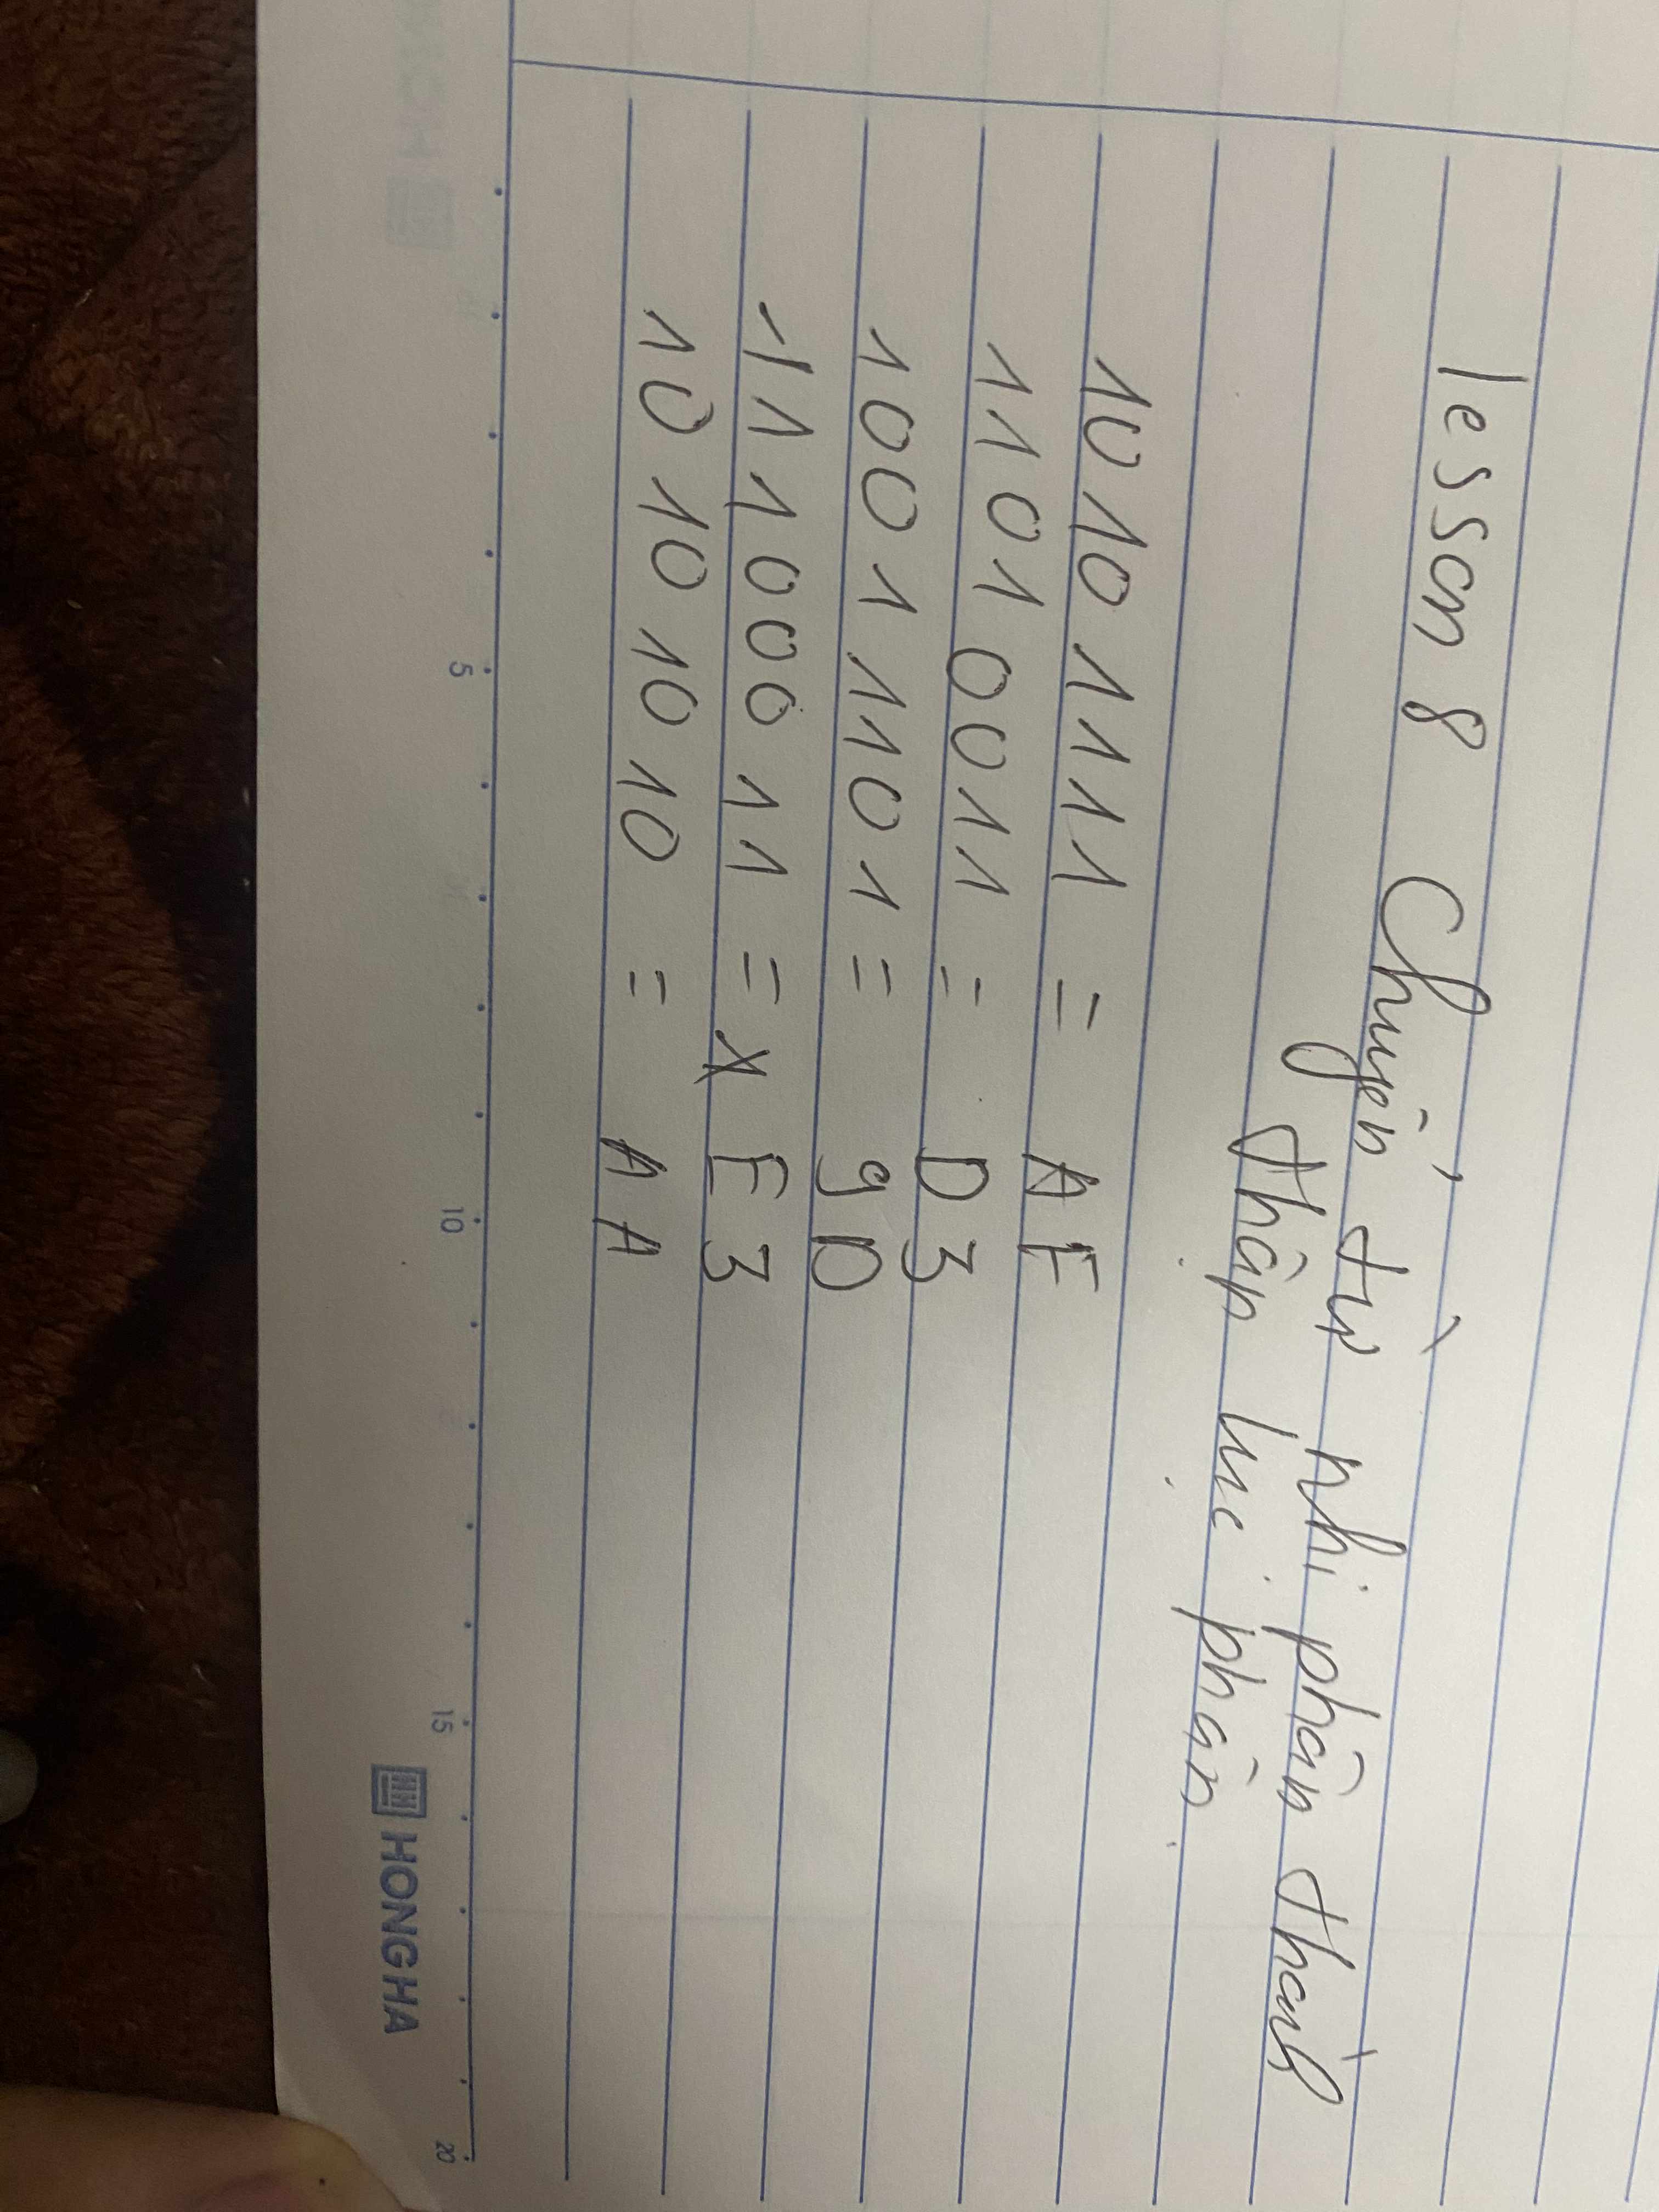 lesson 8 Chuyển từ nhị phân thành
thập lục phân
1010 1111 = AF
1101 0011 = D3
1001 1101 = 9D
1110 0011 = E3
10 10 10 10 = AA
5 10 15 20
HONGHA